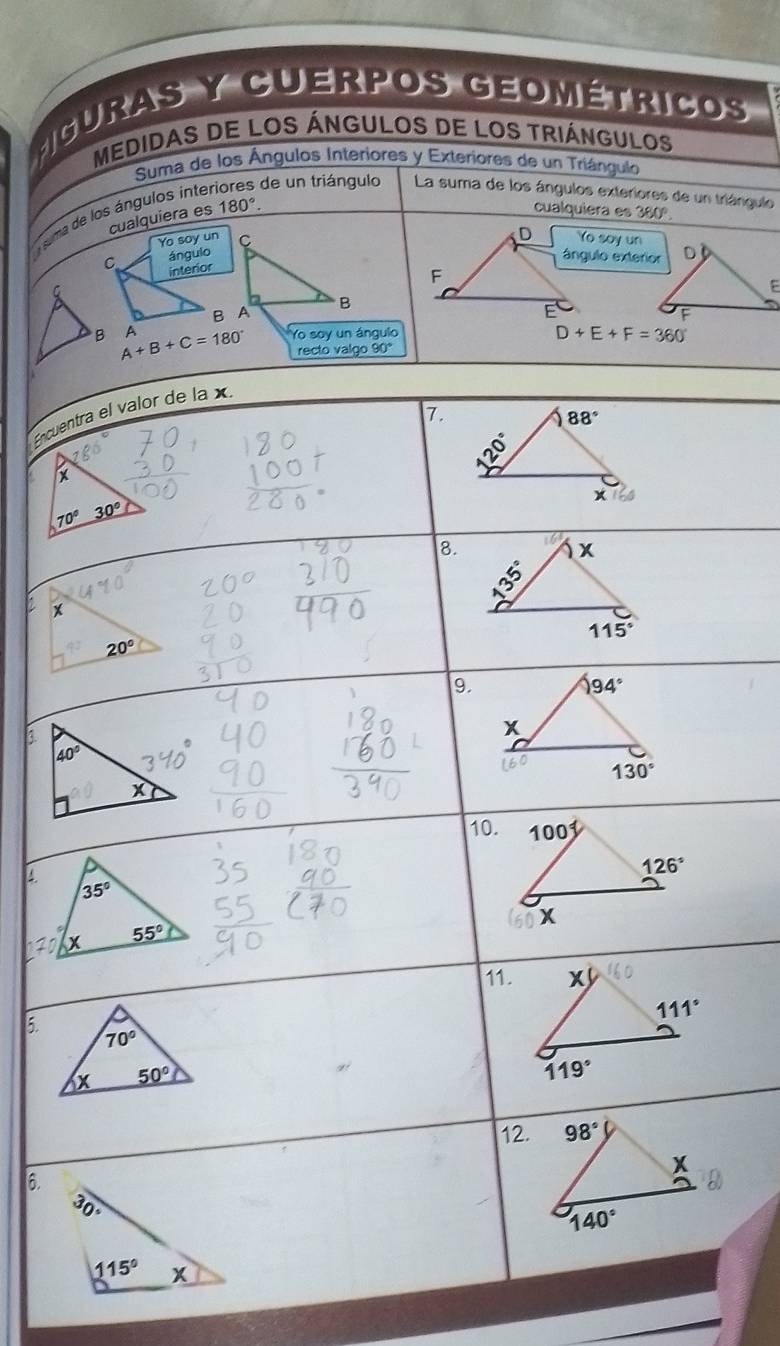 FIGURAS Y CUERPOS GEOMÉTRICOS
MEDIDAS DE LOS ÁNGULOS DE LOS TRIÁNGULOS
Suma de los Ángulos Interiores y Exteriores de un Triángulo
suma de los ángulos interiores de un triángulo
cualquiera es 180°.
La suma de los ángulos exteriores de un triángulo
cualquiera es 360°.
C
B
C
A
B
Yo soy un
ángulo
interior
C
A
B
A + B + C = 180°
Yo soy un ángulo
recto valgo 90°
D
F
E
Yo soy un
ángulo exterior
D
E
F
D + E + F = 360°
Encuentra el valor de la x.
280°
x
70° 30°
70
30
100
180
100 +
280°
2.
490°
x
90
20°
20°
20
90
310
180
310
490
3.
40°
90
x
340°
40
40
90
160
180
160
340
4.
35°
270°
x
55°
35
55
90
180
90
270
5.
70°
x
50°
6.
30°
115°
x
7.
88°
120°
x 160
8.
160
x
135°
115°
9.
94°
x
160
130°
10.
100°
126°
160 x
11.
x 160
111°
119°
12.
98°
x
140°